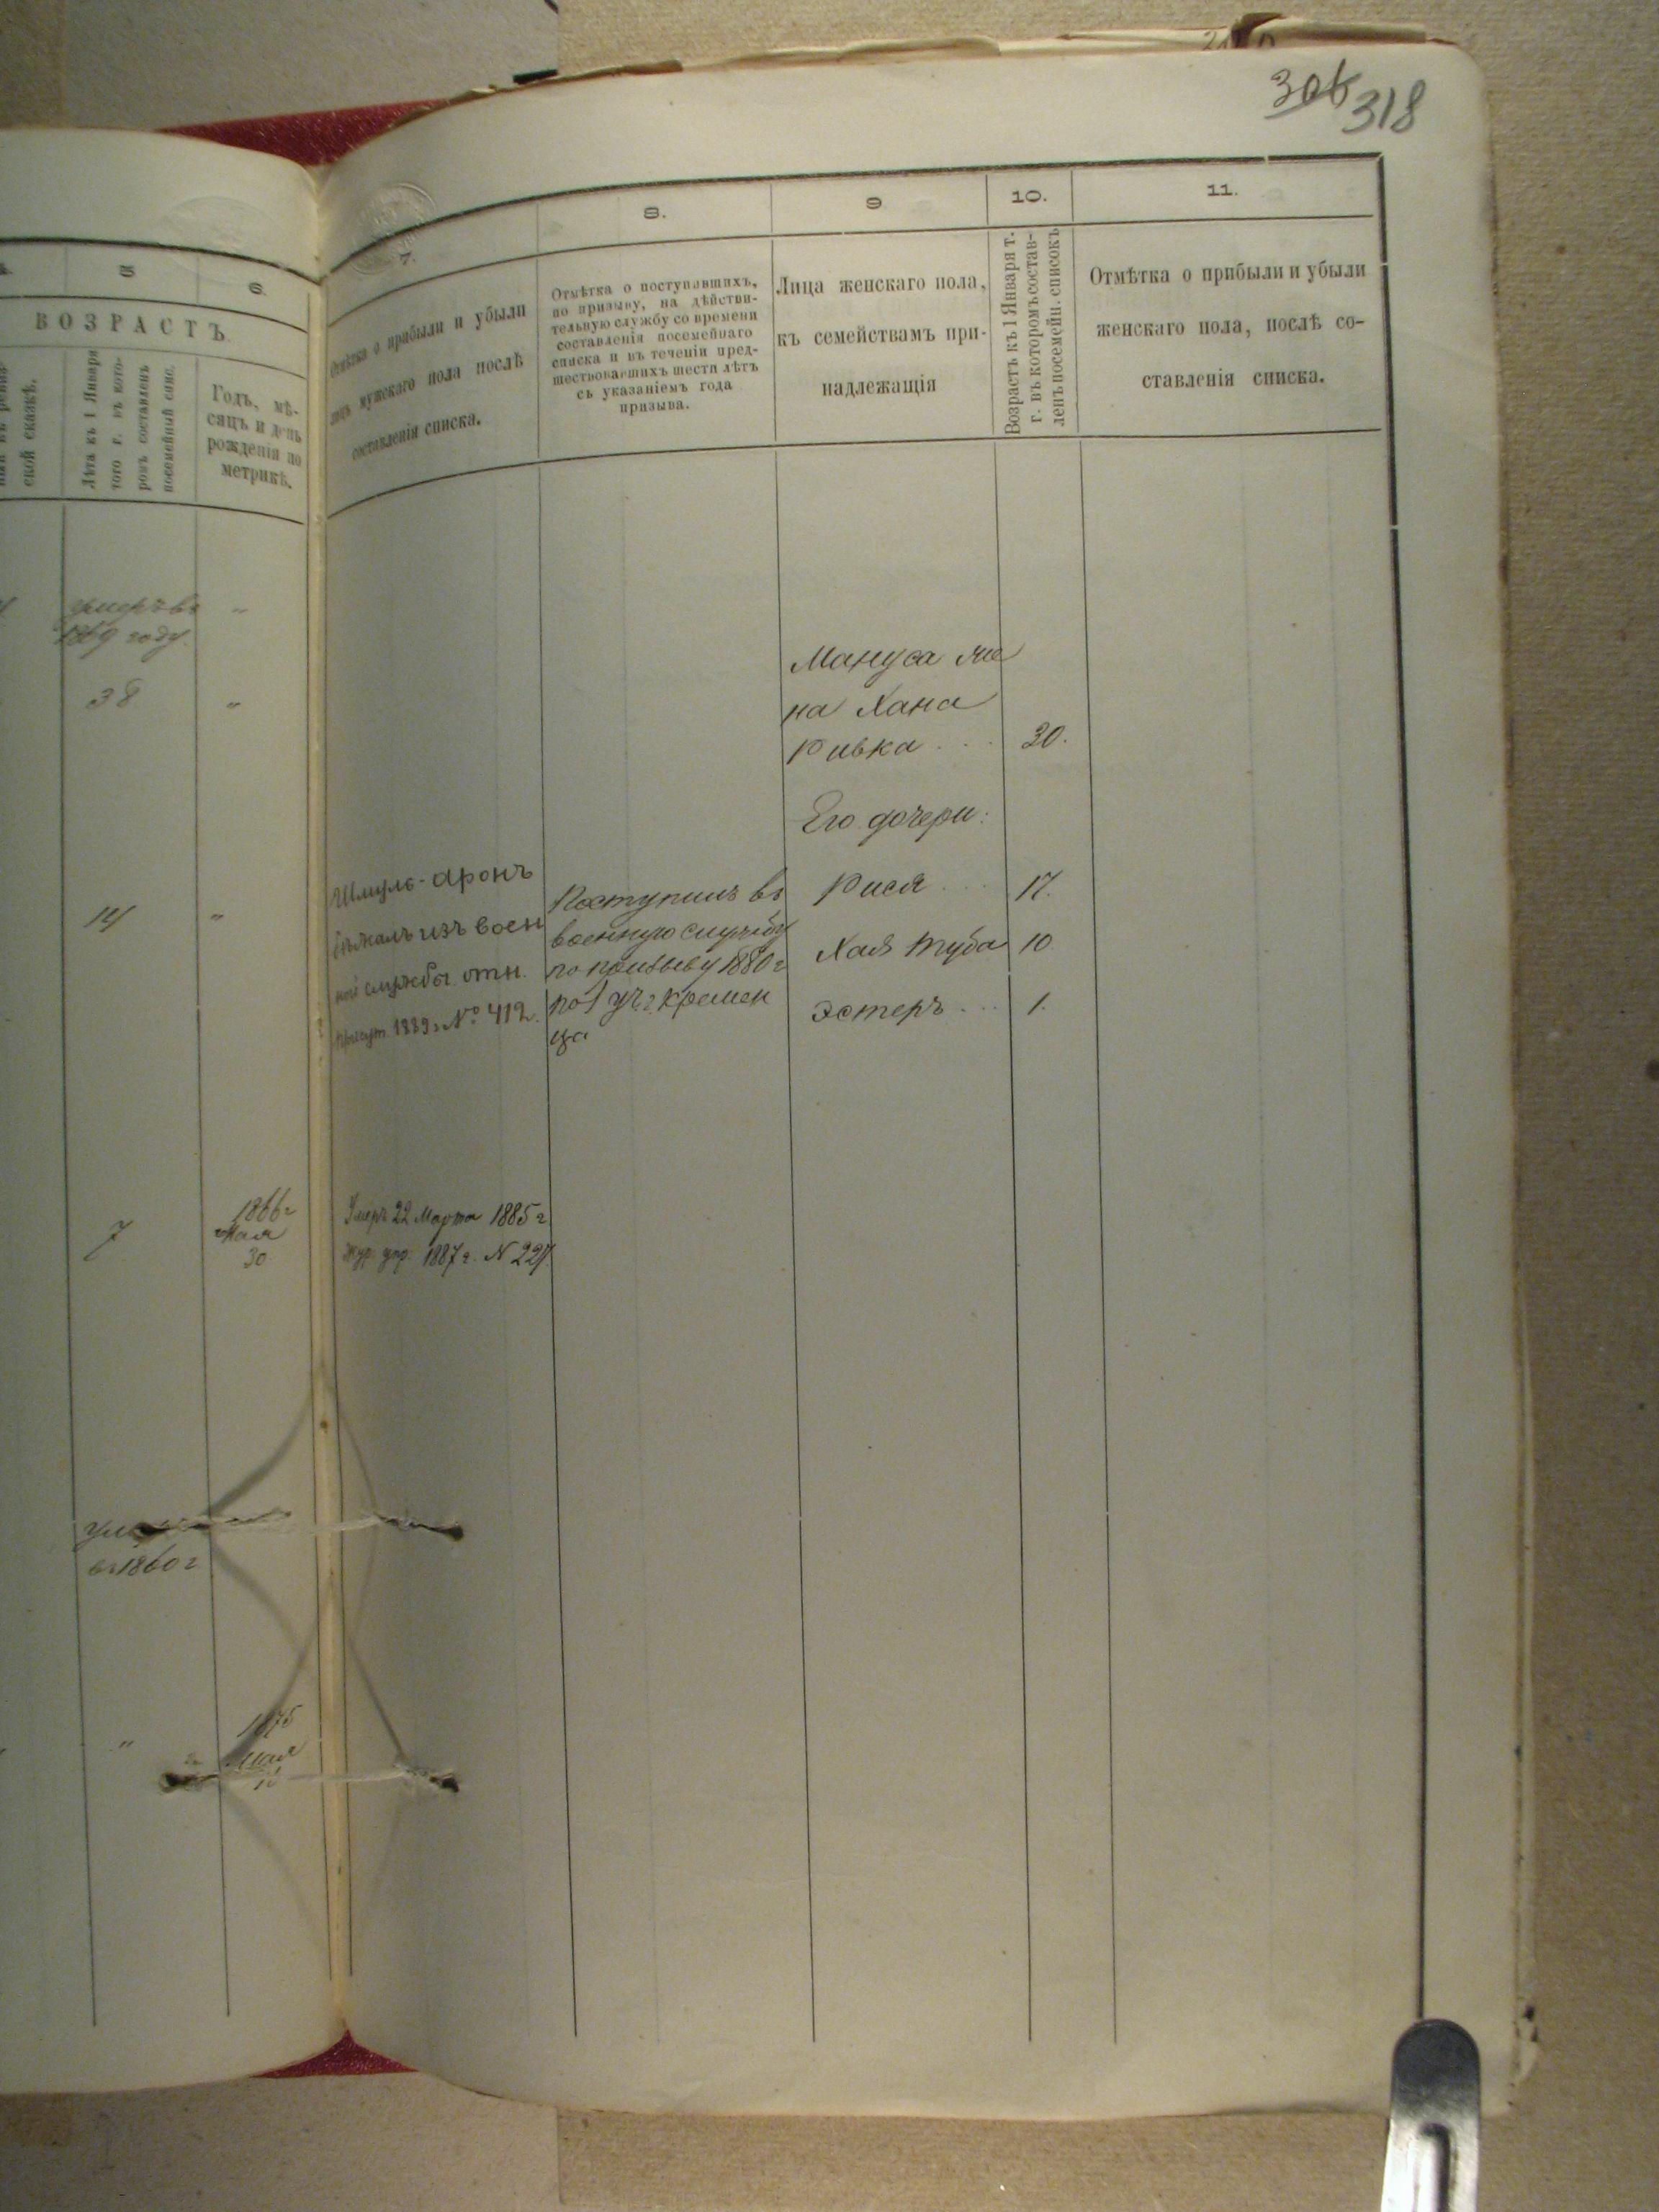 306 318
5
6.
ВОЗРАСТЪ.
ской сказкѣ.
Лѣта къ 1 Января
того г. въ кото-
ромъ составленъ
посемейный спис.
Годъ, мѣ-
сяцъ и день
рожденія по
метрикѣ.
умеръ въ
1869 году.
"
38
"
14
"
7
1866 г
Мая
30
въ 1860 г
"
1875
мая
7.
8.
9
10.
11.
Отмѣтка о прибыли и убыли
лицъ мужскаго пола послѣ
составленія списка.
Отмѣтка о поступившихъ,
по призыву, на дѣйстви-
тельную службу со времени
составленія посемейнаго
списка и въ теченіи пред-
шествовавшихъ шести лѣтъ
съ указаніемъ года
призыва.
Лица женскаго пола,
къ семействамъ при-
надлежащія
Возрастъ къ 1 Января т.
г. въ которомъ состав-
ленъ посемейн. списокъ
Отмѣтка о прибыли и убыли
женскаго пола, послѣ со-
ставленія списка.
Мануса же
на Хана
Ривка . . . 30.
Его дочери:
Рися . . . 17.
Хая Туба 10
Эстеръ . . . 1.
Шмуль-Аронъ
бѣжалъ изъ воен
ной службы отн.
присут. 1889 г № 412.
Поступилъ въ
военную службу
по призыву 1880 г
по 1 уч. г. Кремен
ца
Умеръ 22 Марта 1885 г
Жур. упр. 1887 г. N 227.